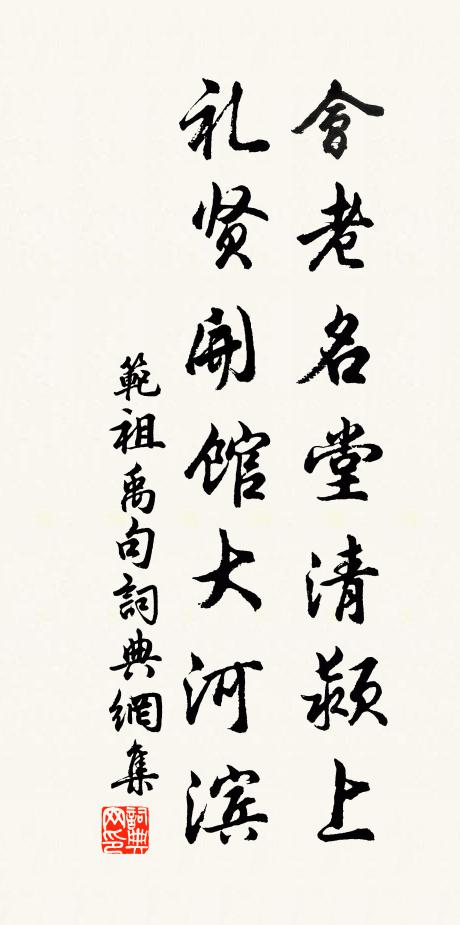 會老名堂清颍上
礼贤開館大河滨
範祖禹句詞典網集
詞典网印